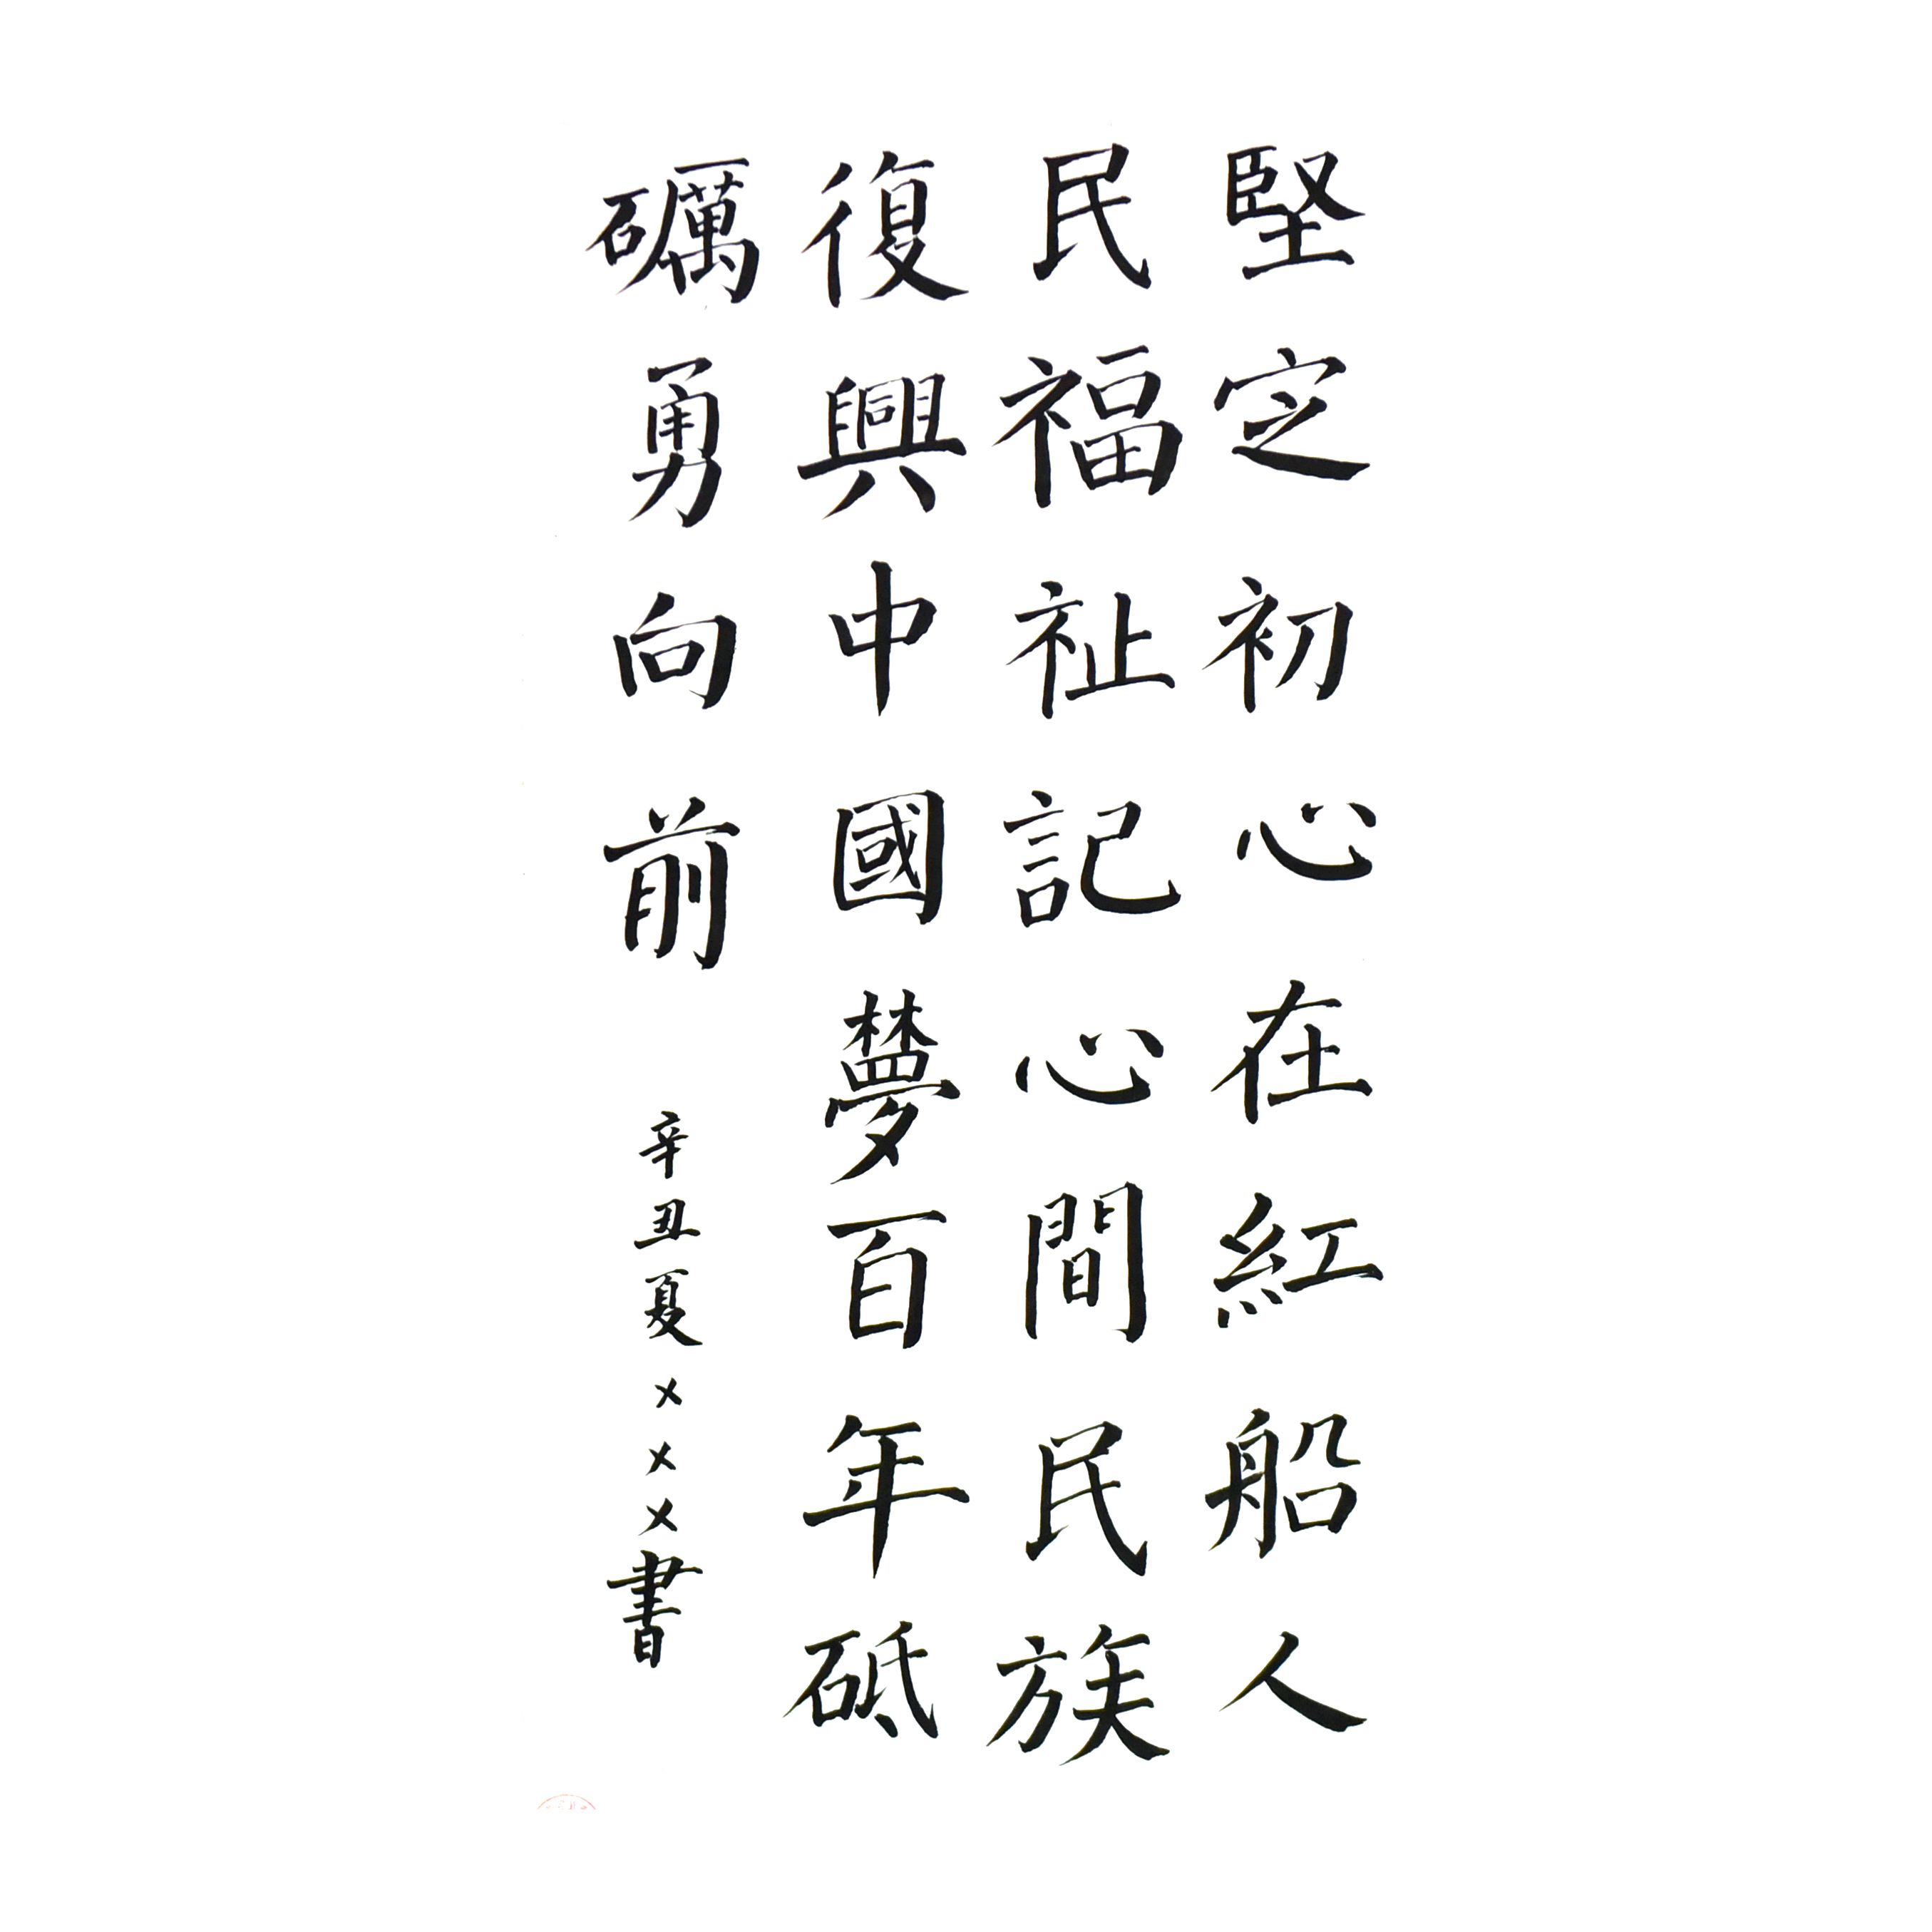 堅定初心在紅船人
民福祉記心間民族
復興中國夢百年砥
礪勇向前
辛丑夏×××書